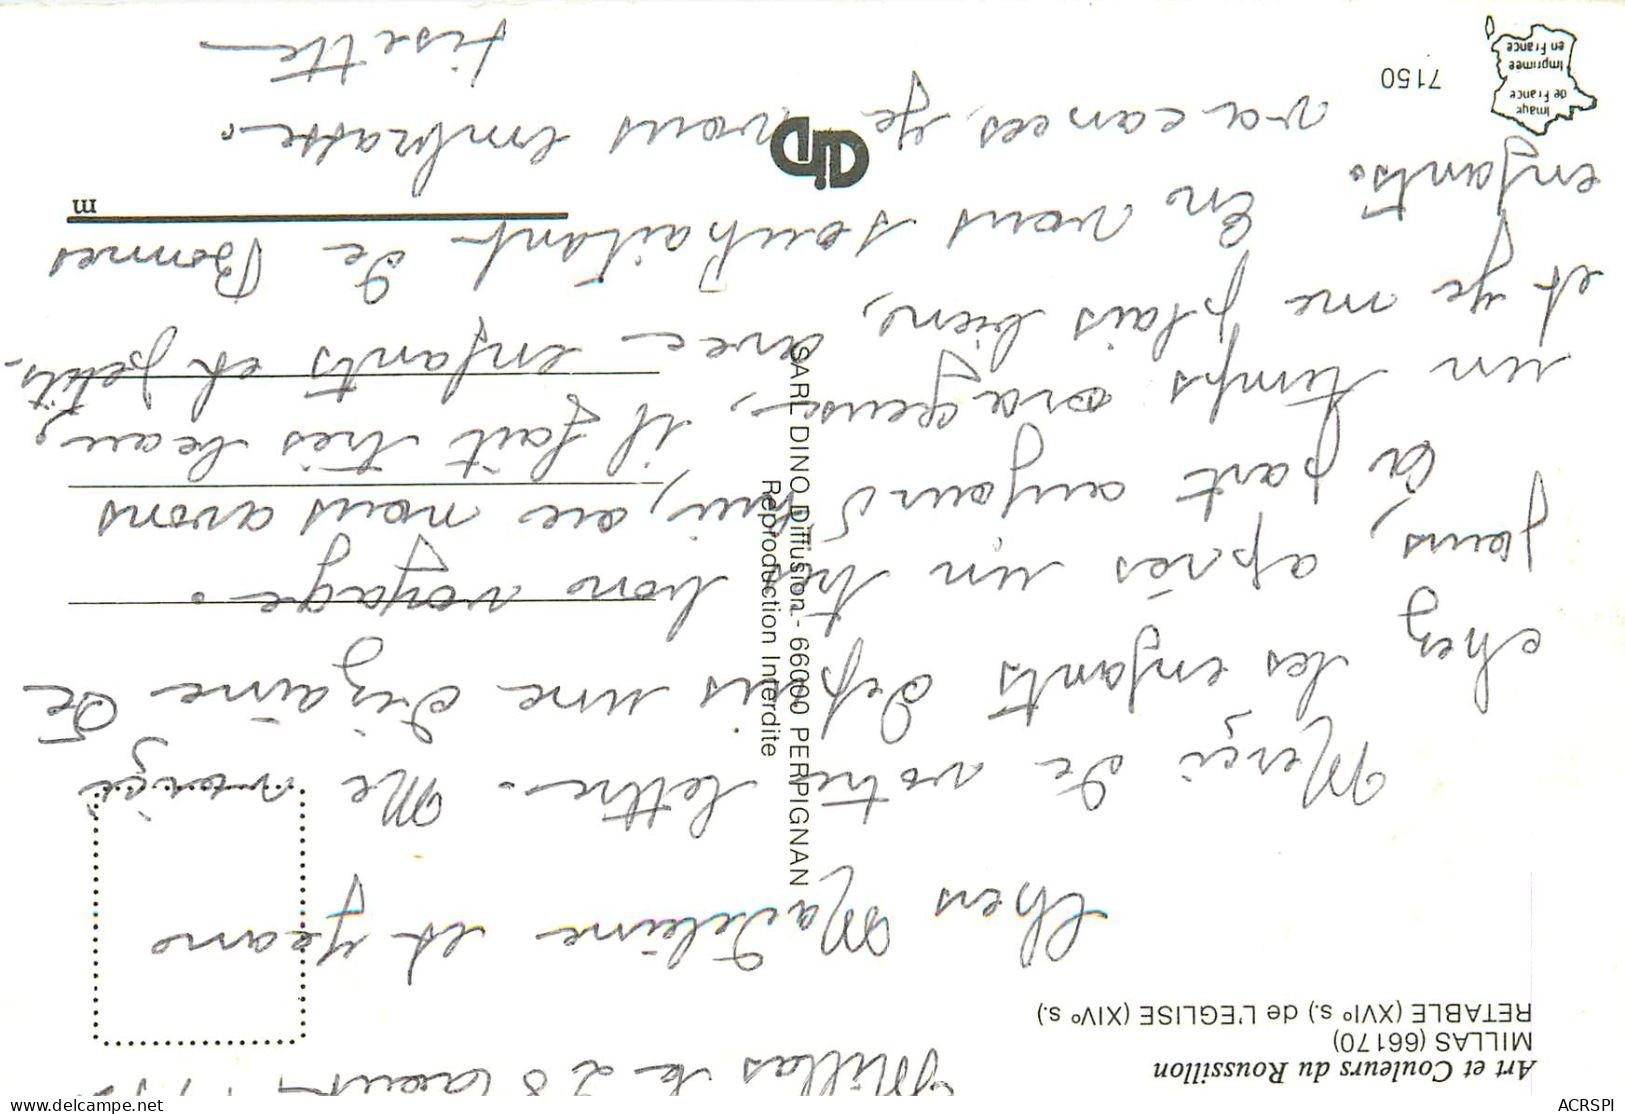 Art et Couleurs du Roussillon
MILLAS (66170)
RETABLE (XVIº s.) de L'EGLISE (XIVº s.)
Millas le 28 aout
Chers Madeleine et Jeano
Merçi de votre lettre. Me voiçi
chez les enfants depuis une dizaine de
jours, après un très bon voyage.
à part aujourd'hui, ou nous avons
un temps orageux, il fait très beau,
et je me plais bien, avec enfants et petits-
enfants. En vous souhaitant de Bonnes
vacances, je vous embrasse.
Lisette
SARL DINO Diffusion - 66000 PERPIGNAN
Reproduction Interdite
m
7150
Image
de France
Imprimée
en France
ACRSPI